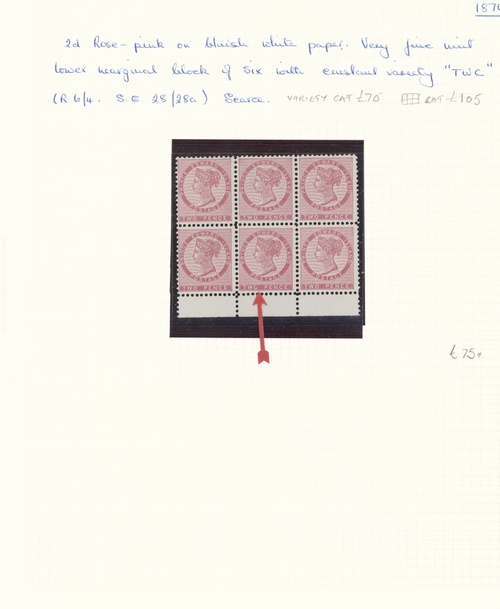 1870
2d Rose-pink on bluish white paper. Very fine mint
lower marginal block of six with constant variety "TWC"
(R 6/4. S.E 28/28a) Scarce. VARIETY CAT £70 CAT £105
TWO PENCE TWO PENCE TWO PENCE
TWO PENCE TWC PENCE TWO PENCE
£75